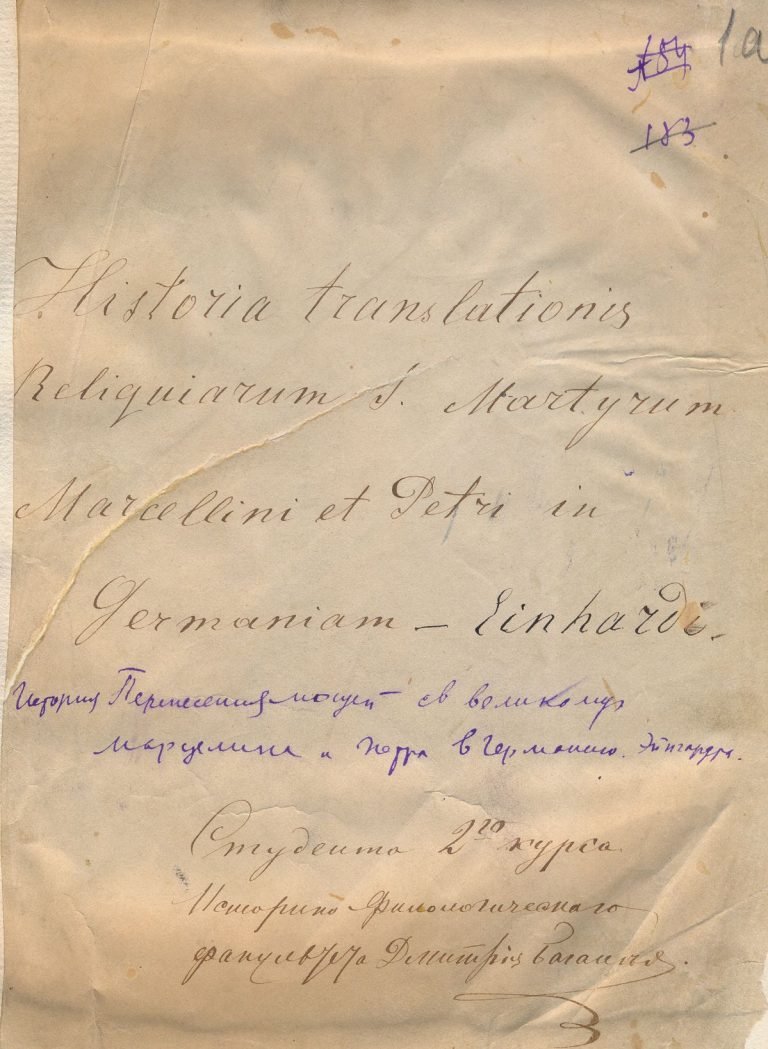 1а
184
183
Historia translationis
Reliquiarum S. Martyrum
Marcellini et Petri in
Germaniam – Einhardi.
История Перенесения мощей св великомуч
Марцелина и Петра в Германию. Эйнгарда.
Студента 2го курса
Историко-Филологическаго
факультета Дмитрія Багалѣя.